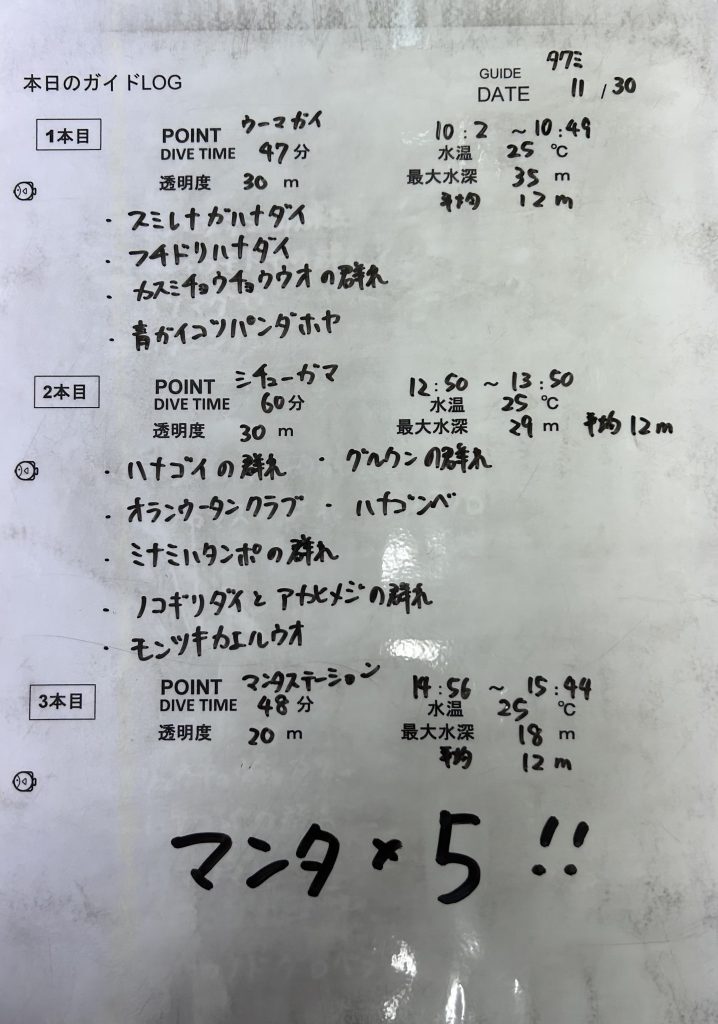 GUIDE タクミ
本日のガイドLOG
DATE 11 / 30
1本目 POINT ウーマガイ 10:2 ~10:49
DIVE TIME 47分 水温 25 ℃
透明度 30 m 最大水深 35 m
平均 12 m
・スミレナガハナダイ
・フチドリハナダイ
・カスミチョウチョウウオの群れ
・青ガイコツパンダホヤ
2本目 POINT シチューガマ 12:50 ~ 13:50
DIVE TIME 60分 水温 25 ℃
透明度 30 m 最大水深 29 m 平均 12 m
・ハナゴイの群れ ・グルクンの群れ
・オランウータンクラブ ・ハナゴンベ
・ミナミハタンポの群れ
・ノコギリダイと アカヒメジの群れ
・モンツキカエルウオ
3本目 POINT マンタステーション 14:56 ~ 15:44
DIVE TIME 48分 水温 25 ℃
透明度 20 m 最大水深 18 m
平均 12 m
マンタ × 5 !!